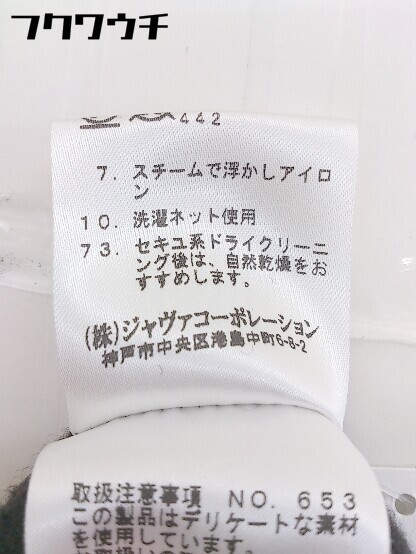 フクワウチ
442
7. スチームで浮かしアイロ
ン
10. 洗濯ネット使用
73. セキユ系ドライクリーニ
ング後は、自然乾燥をお
すすめします。
(株)ジャヴァコーポレーション
神戸市中央区港島中町6-8-2
取扱注意事項 NO. 653
この製品はデリケートな素材
を使用しています。